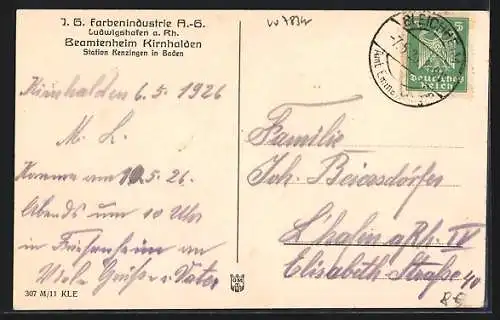 I. G. Farbenindustrie A.-G.
Ludwigshafen a. Rh.
Beamtenheim Kirnhalden
Station Kenzingen in Baden
Kirnhalden 6.5.1926
M. L.
Komme am 10.5.26.
Abends um 10 Uhr
in Friesenheim an
Viele Grüße v. Vater
307 M/11 KLE
BLEICH
Deutsches
Reich
5
Familie
Joh. Beiersdörfer
L'hafen a/Rh. IV
Elisabeth Straße 40
8€